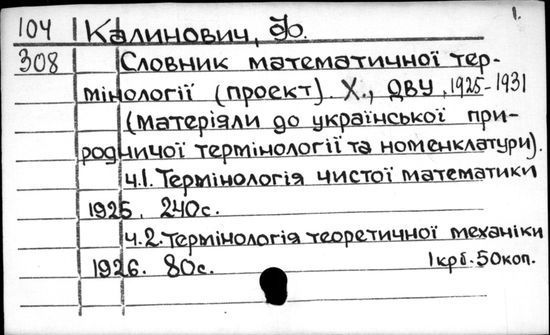 104 Калинович, Ф. 1.
308 Словник математичної тер-
мінології (проект). Х., ДВУ, 1925-1931
(матеріяли до української при-
родничої термінології та номенклатури).
ч.1. Термінологія чистої математики
1925. 240с.
ч.2. Термінологія теоретичної механіки
1926. 80с. 1крб. 50коп.